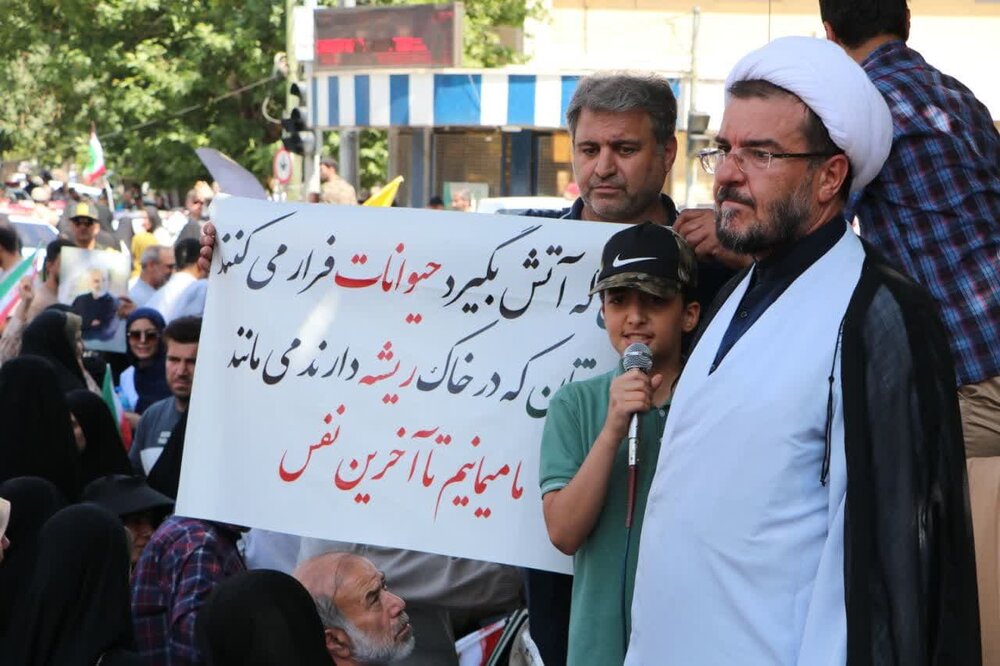 که آتش بگیرد حیوانات فرار می کنند
که در خاک ریشه دارند می مانند
ما میمانیم تا آخرین نفس